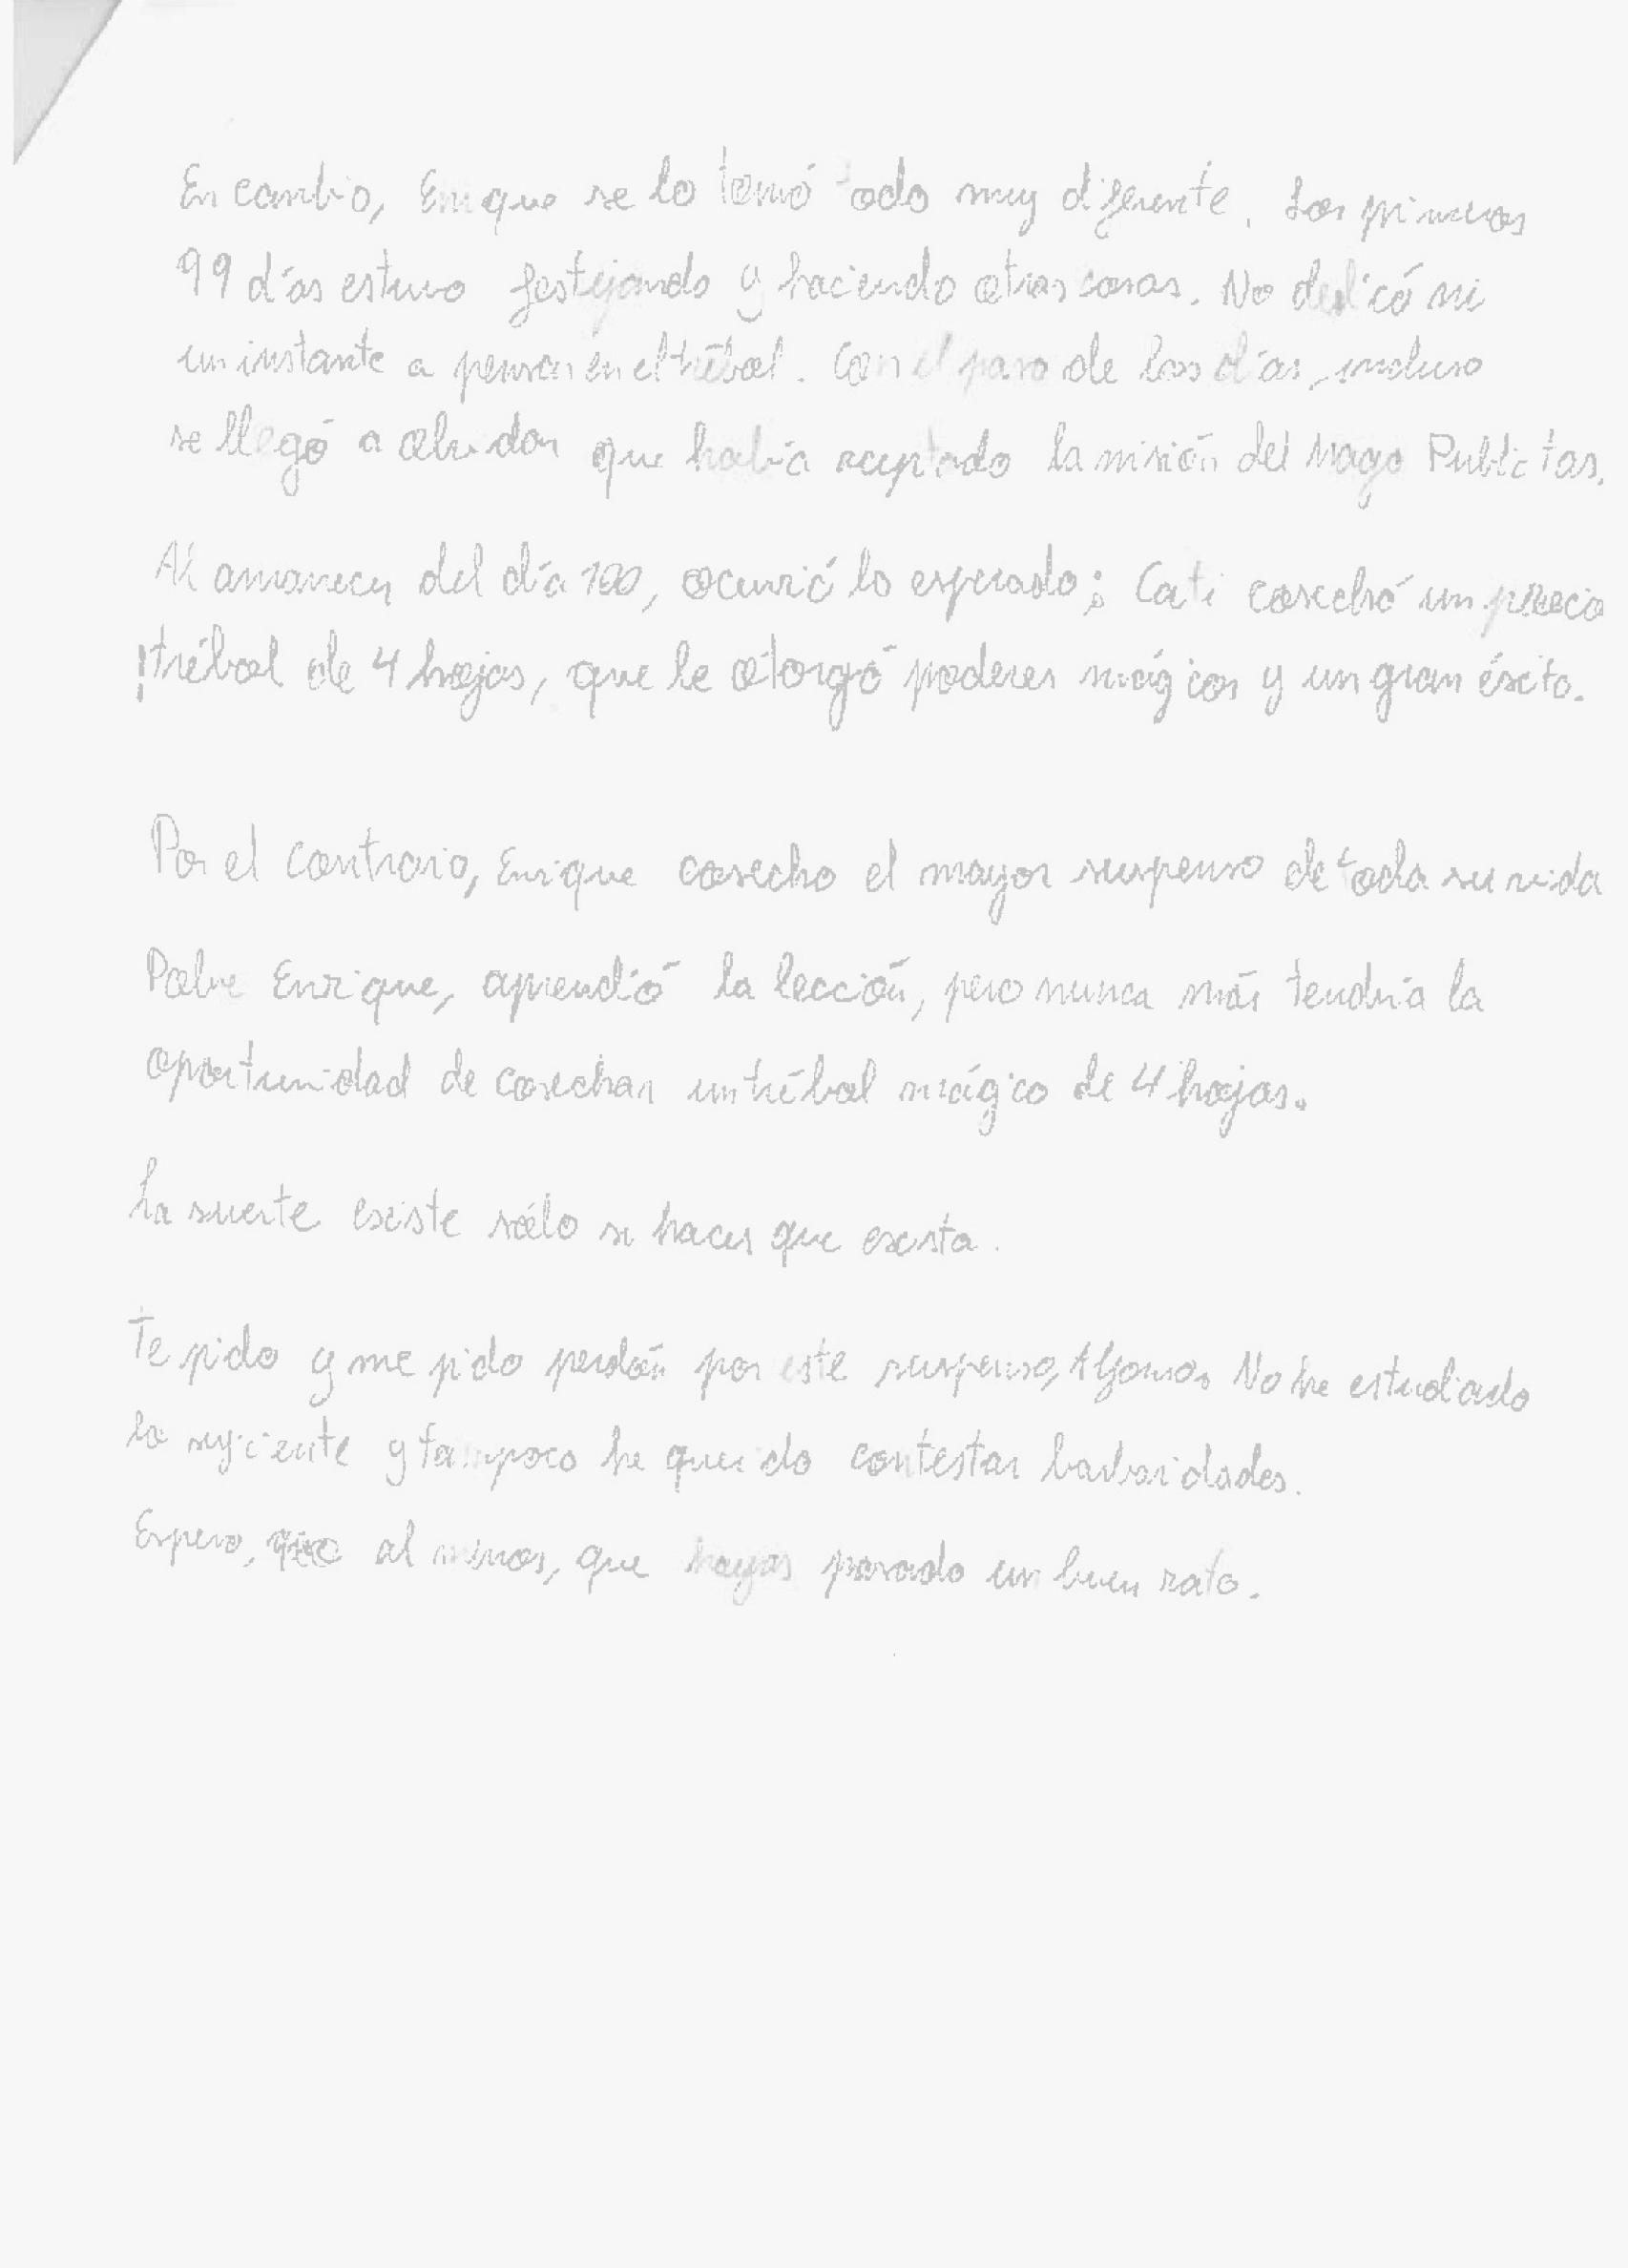 En cambio, Enrique se lo tomó todo muy diferente. Los primeros
99 días estuvo festejando y haciendo otras cosas. No dedicó ni
un instante a pensar en el trébol. Con el paso de los días, incluso
se llegó a olvidar que había aceptado la misión del Mago Publicitas.
Al amanecer del día 100, ocurrió lo esperado; Cati cosechó un
trébol de 4 hojas, que le otorgó poderes mágicos y un gran éxito.
Por el contrario, Enrique cosecho el mayor suspenso de toda su vida
Pobre Enrique, aprendió la lección, pero nunca más tendría la
oportunidad de cosechar un trébol mágico de 4 hojas.
La suerte existe sólo si haces que exista.
Te pido y me pido perdón por este suspenso, Alfonso. No he estudiado
lo suficiente y tampoco he querido contestar barbaridades.
Espero, al menos, que hayas pasado un buen rato.